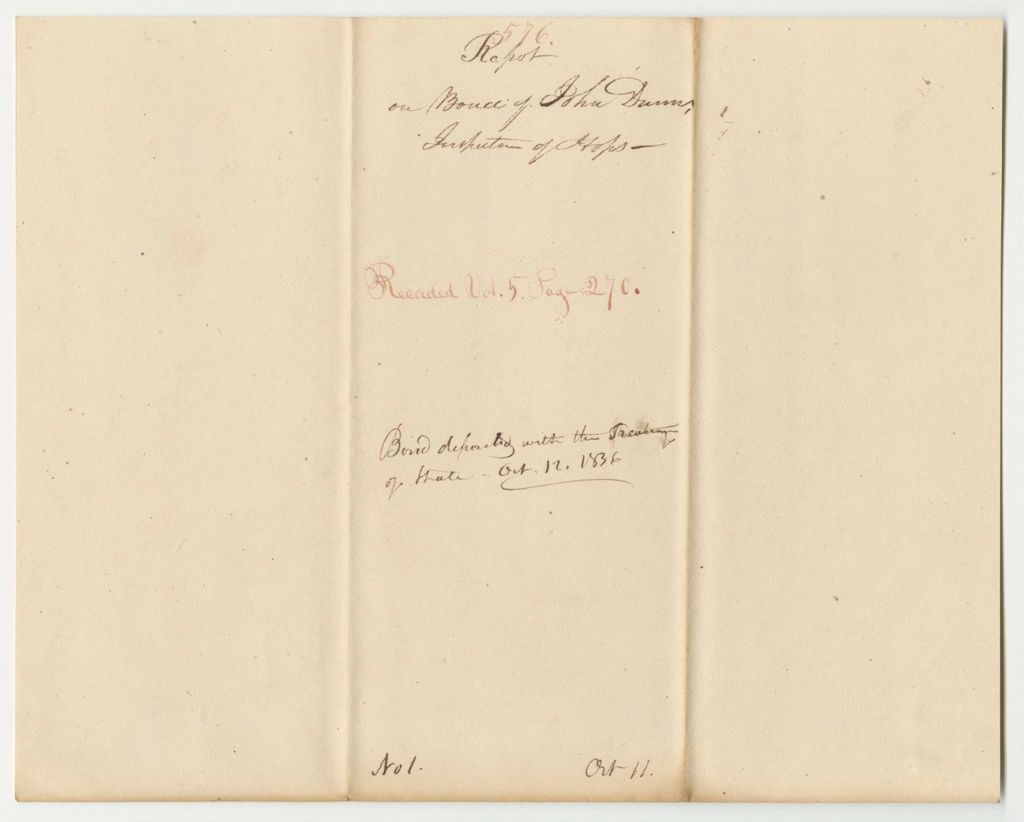 576.
Repot
on Bond of John Dunn,
Inspector of Hops—
Recorded Vol. 5. Page 270.
Bond deposited with the Treasury
of State - Oct. 12. 1836
No 1. Oct 11.